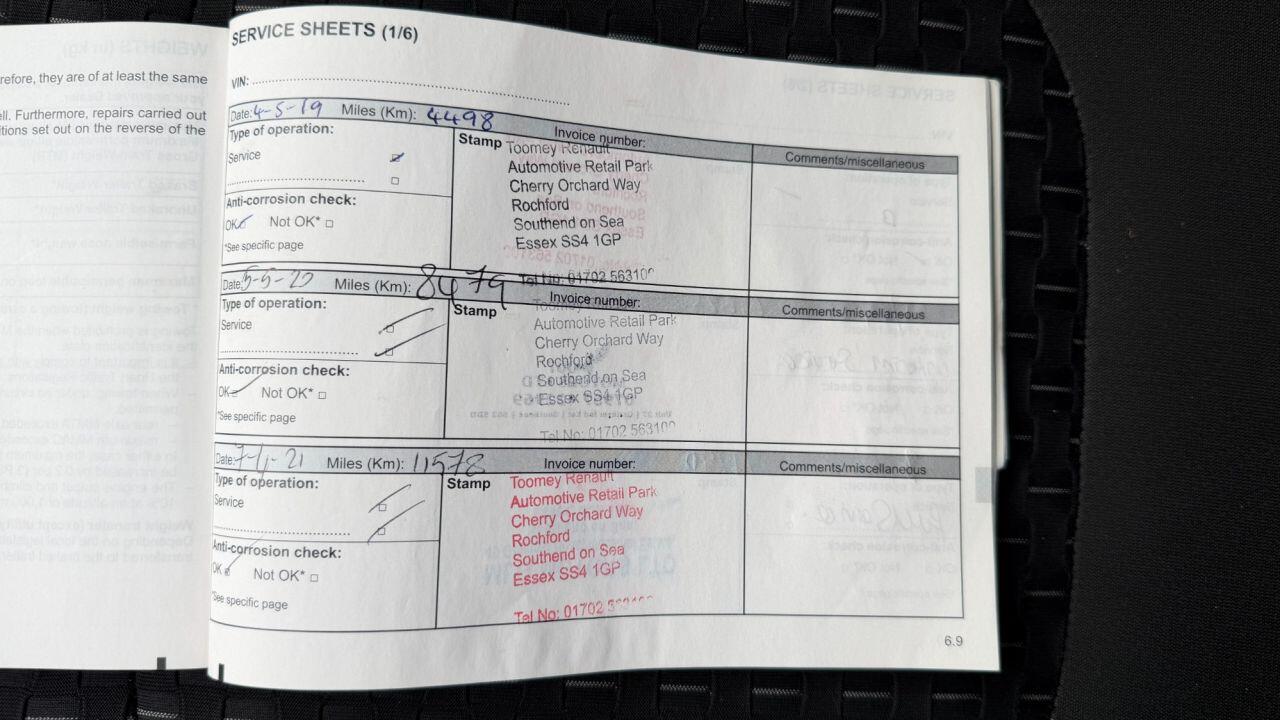 refore, they are of at least the same
ll. Furthermore, repairs carried out
itions set out on the reverse of the
SERVICE SHEETS (1/6)
VIN:
Date: 4-5-19 Miles (Km): 4498 Invoice number:
Type of operation:
Service
Anti-corrosion check:
OK Not OK*
*See specific page
Stamp
Toomey Renault
Automotive Retail Park
Cherry Orchard Way
Rochford
Southend on Sea
Essex SS4 1GP
Tel No: 01702 563100
Comments/miscellaneous
Date: 5-5-20 Miles (Km): 8479 Invoice number:
Type of operation:
Service
Anti-corrosion check:
OK Not OK*
*See specific page
Stamp
Toomey
Automotive Retail Park
Cherry Orchard Way
Rochford
Southend on Sea
Essex SS4 1GP
Tel No: 01702 563100
Comments/miscellaneous
Date: 21 Miles (Km): 11578 Invoice number:
Type of operation:
Service
Anti-corrosion check:
OK Not OK*
*See specific page
Stamp
Toomey Renault
Automotive Retail Park
Cherry Orchard Way
Rochford
Southend on Sea
Essex SS4 1GP
Tel No: 01702
Comments/miscellaneous
6.9